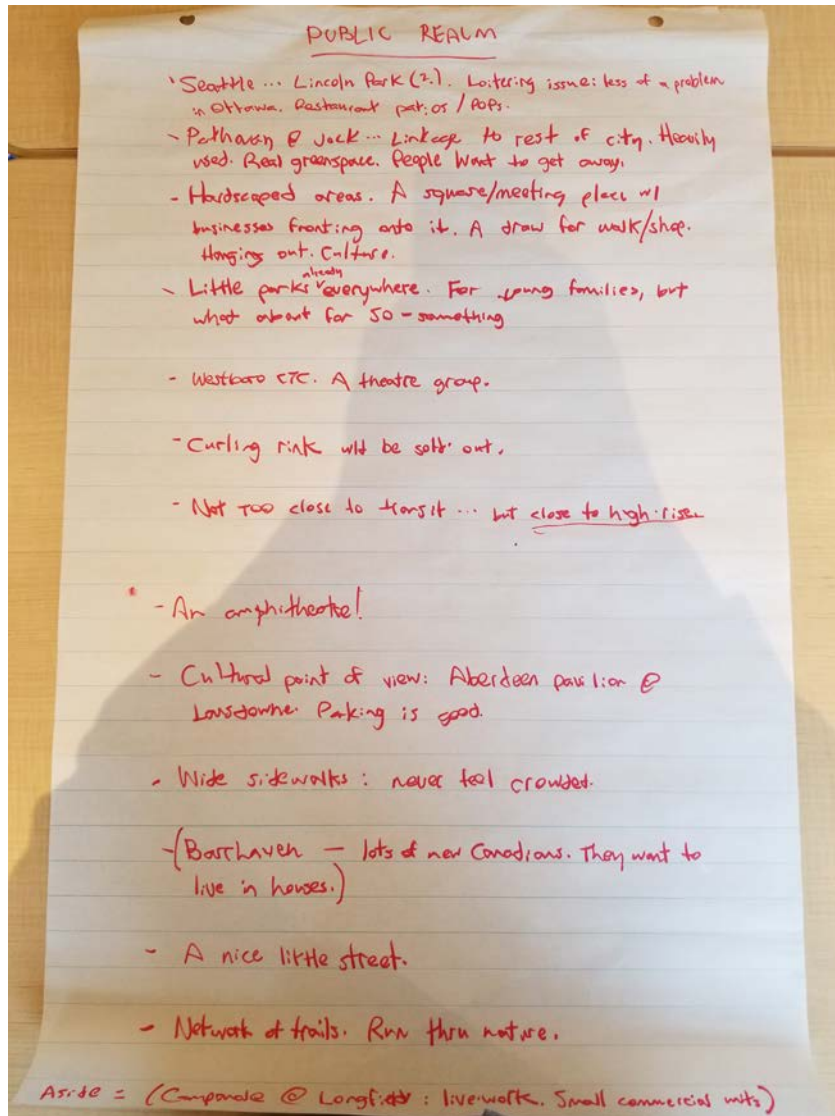 PUBLIC REALM
- Seattle ... Lincoln Park (?). Loitering issue: less of a problem
in Ottawa. Restaurant patios / POPs.
- Pathway @ Jock ... Linkage to rest of city. Heavily
used. Real greenspace. People want to get away.
- Hardscaped areas. A square/meeting place w/
businesses fronting onto it. A draw for walk/shop.
Hanging out. Culture.
- Little parks already everywhere. For young families, but
what about for 50-something
- Westboro CTC. A theatre group.
- Curling rink wld be sold out.
- Not TOO close to transit ... but close to high-rises
- An amphitheatre!
- Cultural point of view: Aberdeen pavilion @
Lansdowne. Parking is good.
- Wide sidewalks: never feel crowded.
- (Barrhaven — lots of new Canadians. They want to
live in houses.)
- A nice little street.
- Network of trails. Run thru nature.
Aside = (Campanale @ Longfields : live-work. Small commercial units)